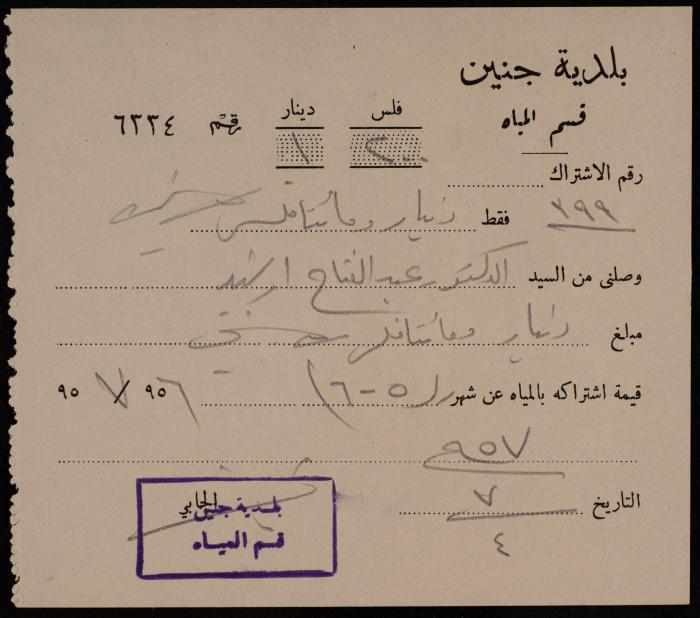 بلدية جنين
قسم المياه
فلس دينار رقم ٦٣٣٤
٢٠٠ ١
رقم الاشتراك
٣٩٩ فقط دينار ومائتا فلس
وصلني من السيد الدكتور عبد الفتاح ارشيد
مبلغ دينار ومائتا فلس
قيمة اشتراكه بالمياه عن شهر (٥-٦) ٩٥٦ / ٩٥٧
٩٥٧
التاريخ ٧
٤
الجابي
بلدية جنين
قسم المياه